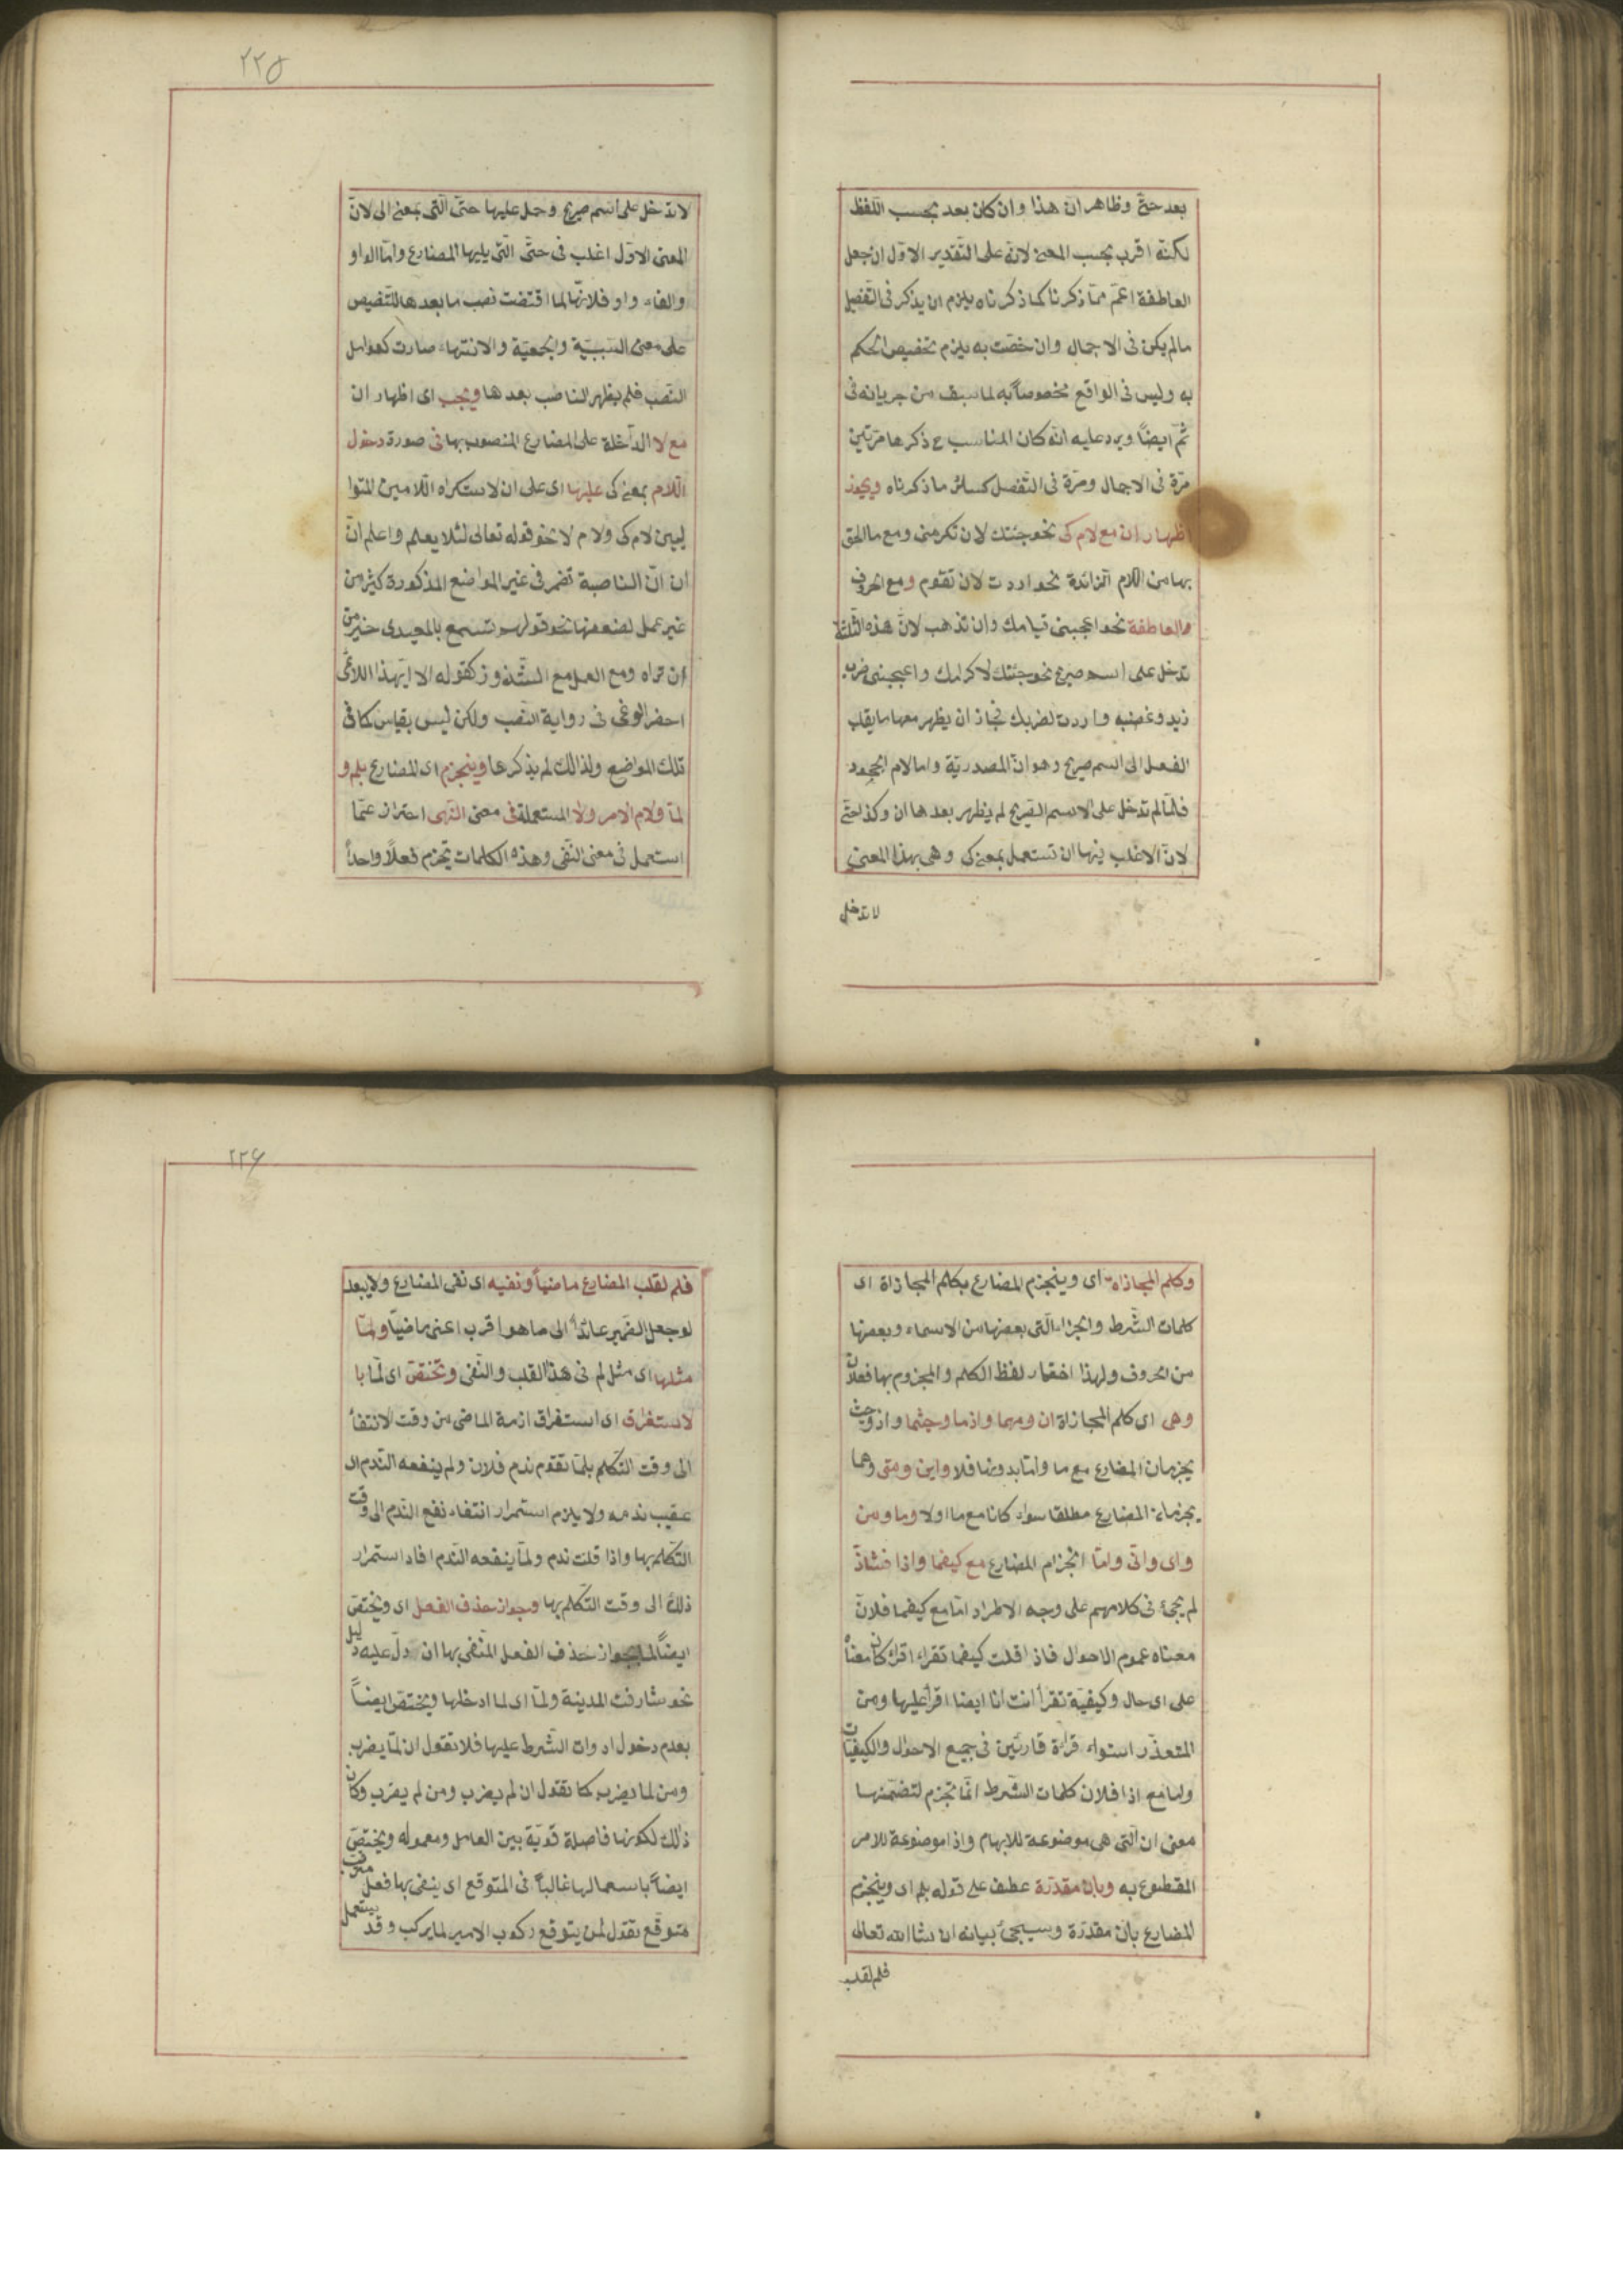 بعد حتّى وظاهر ان هذا وان كان بعد بحسب اللّفظ
لكنّه اقرب بحسب المعنى لانّه على التّقدير الاوّل ان جعل
العاطفة اعمّ ممّا ذكرنا كما ذكرناه يلزم ان يذكر فى التّفصيل
مالم يكن فى الاجمال وان خصّت به يلزم تخصيص الحكم
به وليس فى الواقع مخصوصاً به لما سبق من جريانه فى
ثمّ ايضاً ويرد عليه انّه كان المناسب ح ذكرها مرّتين
مرّة فى الاجمال ومرّة فى التّفصيل كسائر ما ذكرناه ويجوز
اظهار ان مع لام كى نحو جئتك لان تكرمنى ومع ما الحق
بها من اللام الزائدة نحو اردت لان تقوم ومع الحروف
العاطفة نحو اعجبنى قيامك وان تذهب لانّ هذه الثّلثة
تدخل على اسم صريح نحو جئتك لاكرامك واعجبنى ضرب
زيد وغضبه واردت لضربك فجاز ان يظهر معها ما يقلب
الفعل الى اسم صريح وهو ان المصدريّة واما لام الجحود
فلمّا لم تدخل على الاسم الصّريح لم يظهر بعدها ان وكذا حتّى
لانّ الاغلب فيها ان تستعمل بمعنى كى وهى بهذا المعنى
لا تدخل
٢٢٥
لا تدخل على اسم صريح وحمل عليها حتى الّتى بمعنى الى لانّ
المعنى الاوّل اغلب فى حتّى الّتى يليها المضارع وامّا الواو
والفاء واو فلانّها لما اقتضت نصب ما بعدها للتّنصيص
على معنى السّببيّة والجمعيّة والانتهاء صارت كعوامل
النّصب فلم يظهر النّاصب بعدها ويجب اى اظهار ان
مع لا الدّاخلة على المضارع المنصوب بها فى صورة دخول
اللّام بمعنى كى عليها اى على ان لاستكراه اللّامين المتوا
ليين لام كى ولام لا نحو قوله تعالى لئلا يعلم واعلم انّ
ان النّاصبة تضمر فى غير المواضع المذكورة كثير من
غير عمل لضعفها نحو قولهم تسمع بالمعيدى خير من
ان تراه ومع العمل مع الشّذوذ كقوله الا ايّهذا اللّائمى
احضر الوغى فى رواية النّصب ولكن ليس بقياس كما فى
تلك المواضع ولذالك لم يذكرها وينجزم اى المضارع بلم و
لمّا ولام الامر ولا المستعملة فى معنى النّهى احتراز عمّا
استعمل فى معنى النّفى وهذه الكلمات تجزم فعلاً واحداً
وكلم المجازاة اى وينجزم المضارع بكلم المجازاة اى
كلمات الشّرط والجزاء الّتى بعضها من الاسماء وبعضها
من الحروف ولهذا اختار لفظ الكلم والمجزوم بها فعلان
وهى اى كلم المجازاة ان ومهما واذما وحيثما واذ وحيث
يجزمان المضارع مع ما وامّا بدونها فلا واين ومتى وهما
يجزمان المضارع مطلقا سواء كانا مع ما اولا وما ومن
واى وانّى وامّا انجزام المضارع مع كيفما واذا فشاذّ
لم يجئ فى كلامهم على وجه الاطراد امّا مع كيفما فلانّ
معناه عموم الاحوال فاذا قلت كيفما تقراء اقراء كان معناه
على اى حال وكيفيّة تقرأ انت انا ايضا اقرأ عليها ومن
المتعذّر استواء قراءة قارئين فى جميع الاحوال والكيفيّات
وامّا مع اذا فلان كلمات الشّرط انّما تجزم لتضمّنها
معنى ان الّتى هى موضوعة للابهام واذا موضوعة للامر
المقطوع به وبان مقدّرة عطف على قوله بلم اى وينجزم
المضارع بان مقدّرة وسيجئ بيانه ان شاء الله تعالى
فلم لقلب
٢٢٦
فلم لقلب المضارع ماضياً ونفيه اى نفى المضارع ولا يبعد
لو جعل الضّمير عائداً الى ما هو اقرب اعنى ماضياً ولمّا
مثلها اى مثل لم فى هذا القلب والنّفى وتختصّ اى لمّا با
لاستغراق اى استغراق ازمنة الماضى من وقت الانتفاء
الى وقت التّكلم بلمّا تقول ندم فلان ولم ينفعه النّدم اى
عقيب ندمه ولا يلزم استمرار انتفاء نفع النّدم الى وقت
التّكلم بها واذا قلت ندم ولمّا ينفعه النّدم افاد استمرار
ذلك الى وقت التّكلم بها وبجواز حذف الفعل اى وتختصّ
ايضاً لما بجواز حذف الفعل المنفى بها ان دلّ عليه دليل
نحو شارفت المدينة ولمّا اى لما ادخلها وتختصّ ايضاً
بعدم دخول ادوات الشّرط عليها فلا تقول ان لمّا يضرب
ومن لما يضرب كما تقول ان لم يضرب ومن لم يضرب وكان
ذلك لكونها فاصلة قويّة بين العامل ومعموله وتختصّ
ايضاً باستعمالها غالباً فى المتوقع اى ينفى بها فعل مترقب
متوقّع تقول لمن يتوقع ركوب الامير لما يركب وقد يستعمل